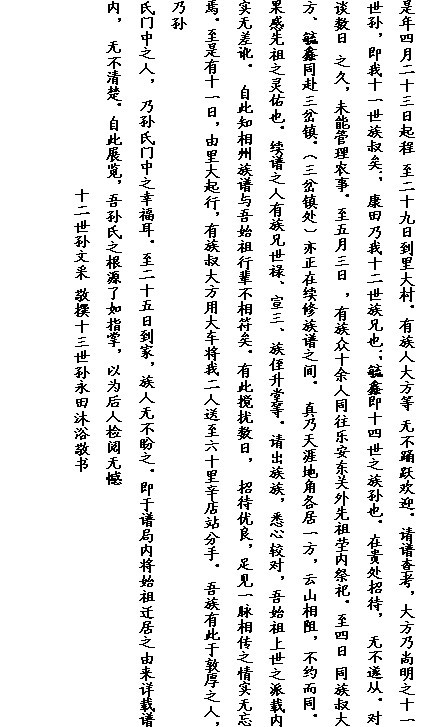 是年四月二十三日起程 至二十九日到里大村。有族人大方等 无不踊跃欢迎。请谱查考，大方乃尚明之十一
世孙，即我十一世族叔矣；康田乃我十二世族兄也；毓鑫即十四世之族孙也。在贵处招待，无不遂从。对
谈数日 之久，未能管理农事。至五月三日 ，有族众十余人同往乐安东关外先祖茔内祭祀。至四日 同族叔大
方、毓鑫同赴三岔镇。（三岔镇处）亦正在续修族谱之间。 真乃天涯地角各居一方，云山相阻，不约而同。
果感先祖之灵佑也。续谱之人有族兄世禄、宣三、族侄升堂等。请出族族，悉心较对，吾始祖上世之派载内
实无差讹。 自此知相州族谱与吾始祖行辈不相符矣。有此搅扰数日， 招待优良，足见一脉相传之情实无忘
焉。至是有十一日，由里大起行，有族叔大方用大车将我二人送至六十里辛店站分手。 吾族有此于敦厚之人，
乃孙
氏门中之人， 乃孙氏门中之幸福耳。至二十五日到家，族人无不盼之。即于谱局内将始祖迁居之由来详载谱
内， 无不清楚。自此展览，吾孙氏之根源了如指掌，以为后人检阅无憾
十二世孙文采 敬撰十三世孙永田沐浴敬书